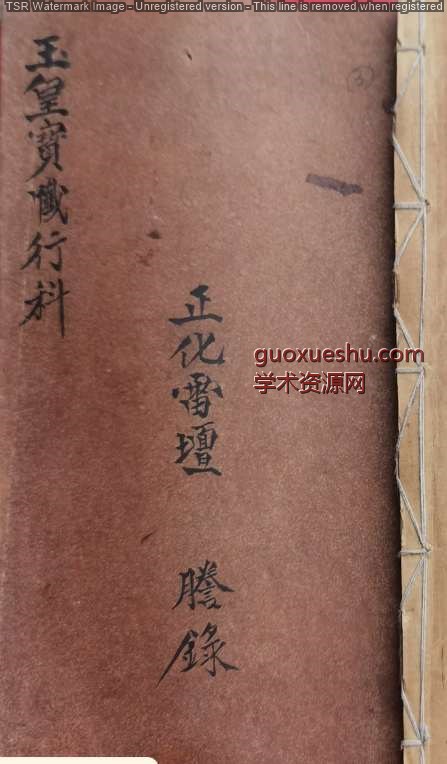 TSR Watermark Image - Unregistered version - This line is removed when registered
玉皇寶懺行科
③
正化雷壇 謄錄
guoxueshu.com
学术资源网